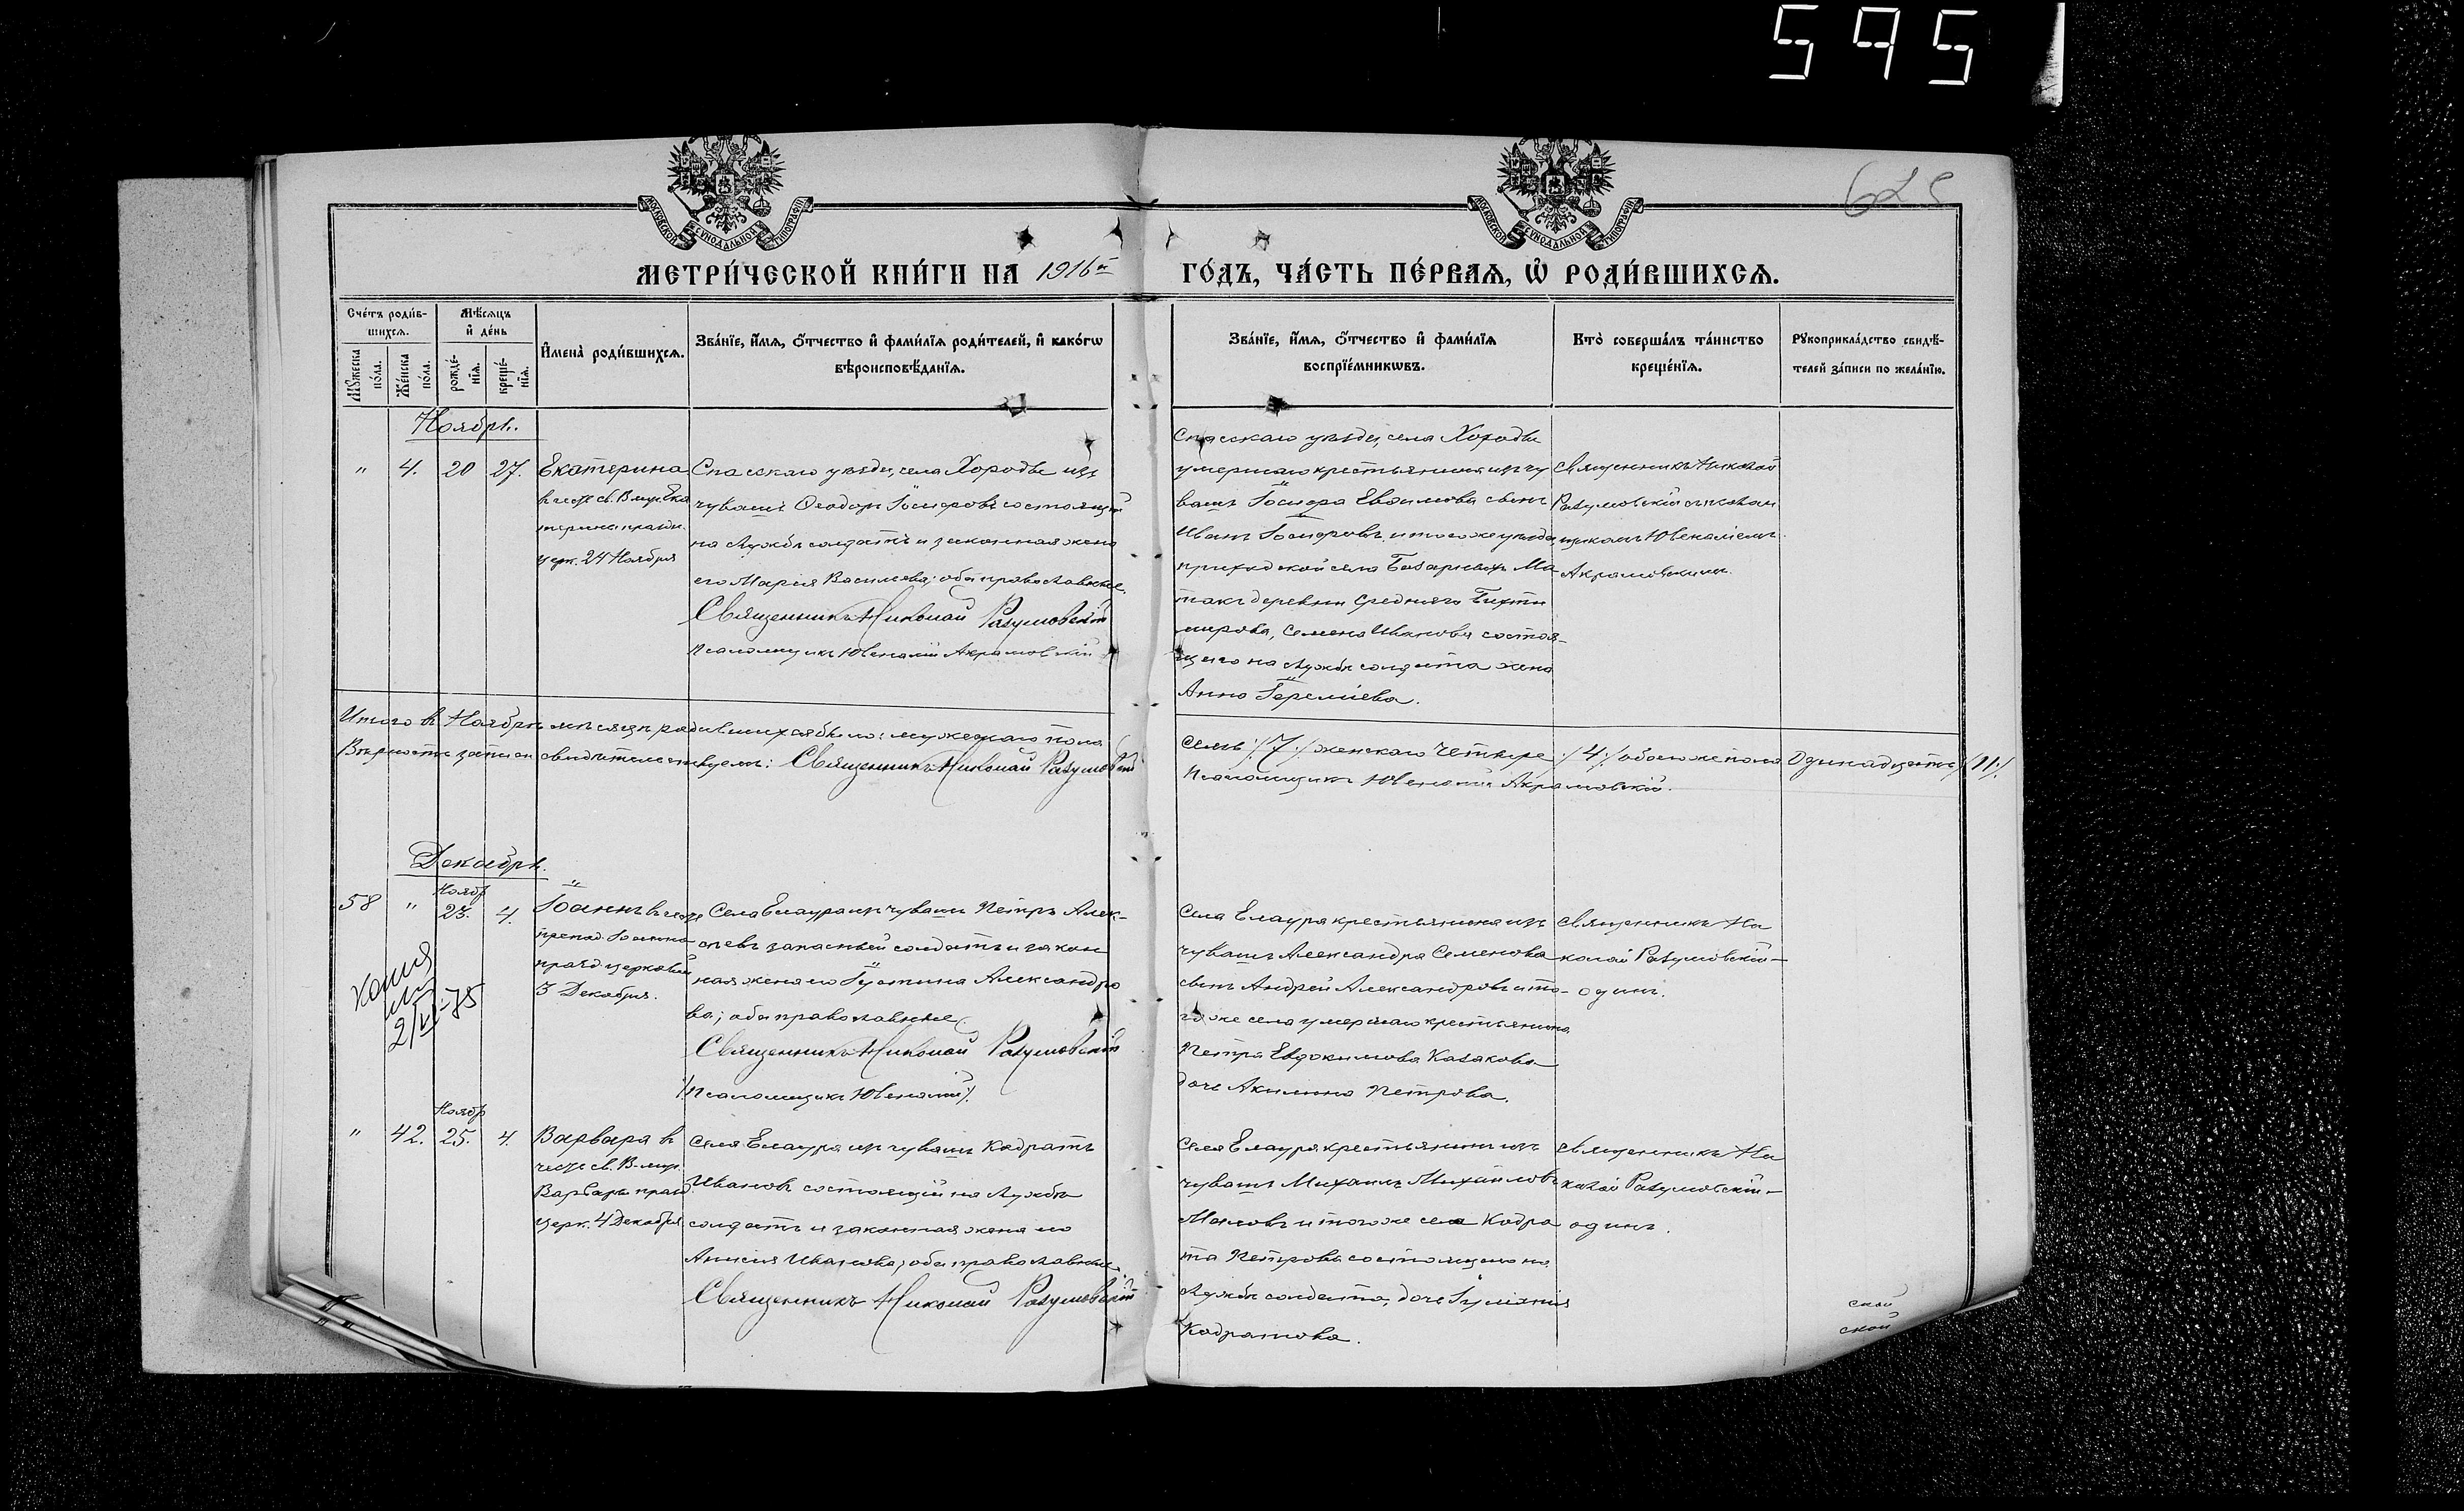 595
625
МОСКОВСКОЙ СѴНОДАЛЬНОЙ ТИПОГРАФІИ
МОСКОВСКОЙ СѴНОДАЛЬНОЙ ТИПОГРАФІИ
МЕТРИ́ЧЕСКОЙ КНИ́ГИ НА 1916й ГО́ДЪ, ЧА́СТЬ ПЕ́РВАѦ, Ѡ҆ РОДИ́ВШИХСѦ.
Сче́тъ роди́в-
шихсѧ.
Мѣ́сѧцъ
и҆ де́нь
Мꙋ́жеска
по́ла.
Же́нска
по́ла.
рожде́-
нїѧ.
креще́-
нїѧ.
И҆мена̀ роди́вшихсѧ.
Зва́нїе, и҆́мѧ, ѻ҆́тчество и҆ фами́лїѧ роди́телей, и҆ како́гѡ
вѣроисповѣ́данїѧ.
Зва́нїе, и҆́мѧ, ѻ҆́тчество и҆ фами́лїѧ
воспрїе́мникѡвъ.
Кто̀ соверша́лъ та́инство
креще́нїѧ.
Рꙋкоприкла́дство свидѣ́-
телей за́писи по жела́нїю.
Ноябрь.
" 4. 20 27.
Екатерина
въ честь св. В. муч. Ека
терины праздн.
церк. 24 Ноября
Спасскаго уѣзда, села Хородъ изъ
чувашъ Ѳеодоръ Іосифовъ состоящій
на службѣ солдатъ и законная жена
его Марія Василева; оба православные.
Священникъ Николай Разумовскій
Псаломщикъ Ювеналій Акрамовскій
Спасскаго уѣзда, села Хородъ
умершаго крестьянина изъ чу
вашъ Іосифа Евѳимова сынъ
Иванъ Іосифовъ и того же уѣзда
приход­ской села Базарныхъ Ма
такъ деревни Средняго
Семена Иванова состоя-
щаго на службѣ солдата жена
Анна Іереміева.
Священникъ Николай
Разумовскій съ псалом
щикомъ Ювеналіемъ
Акрамовскимъ.
Итого въ Ноябрѣ мѣсяцѣ родившихся было: мужескаго пола
семь /7/ женскаго четыре /4/ обоего же пола Одинадцать /11/.
Вѣрность записи свидѣтельствуемъ: Священникъ Николай Разумовскій
Псаломщикъ Ювеналій Акрамовскій.
Декабрь.
Ноябр
58 " 23. 4.
Іоаннъ въ честь
препод. Іоанна
празд. церковью
3 Декабря.
копия
75
Села Елаура изъ чувашъ Петръ Алек-
сѣевъ запасный солдатъ и закон
ная жена его Іустина Александро
ва; оба православные.
Священникъ Николай Разумовскій
/Псаломщикъ Ювеналій/.
Села Елаура крестьянина изъ
чувашъ Александра Семенова
сынъ Андрей Александровъ и то-
го же села умершаго крестьянина
Петра Евдокимова Казакова
дочь Акилина Петрова.
Священникъ Ни
колай Разумовскій -
одинъ.
Ноябр
" 42. 25. 4.
Варвара въ
честь св. В. муч.
Варвары празд
церк. 4 Декабря
Села Елаура изъ чувашъ Кодратъ
Ивановъ состоящій на службѣ
солдатъ и законная жена его
Анисія Иванова; оба православные.
Священникъ Николай Разумовскій
Села Елаура крестьянинъ изъ
чувашъ Михаилъ Михайловъ
и того же села Кодра
та Петрова состоящаго на
службѣ солдата, дочь Іуліанія
Кодратова.
Священникъ Ни
колай Разумовскій -
одинъ.
ской
ской